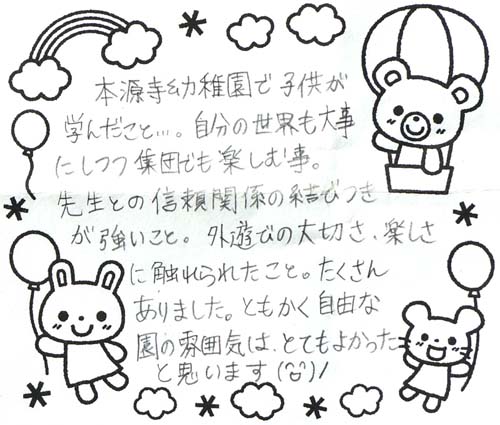 本源寺幼稚園で子供が
学んだこと…。自分の世界も大事
にしつつ集団でも楽しむ事。
先生との信頼関係の結びつき
が強いこと。外遊びの大切さ、楽しさ
に触れられたこと。たくさん
ありました。ともかく自由な
園の雰囲気は、とてもよかった
と思います(^ω^)!